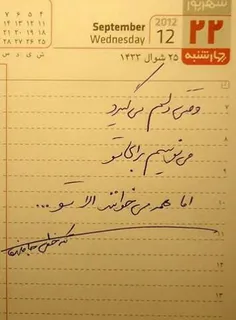 شهریور
۲۲
چهارشنبه
2012
12
September
Wednesday
۲۵ شوال ۱۴۳۳
۴ ۵ ۶ ۷
۱۱ ۱۲ ۱۳ ۱۴
۱۸ ۱۹ ۲۰ ۲۱
۲۵ ۲۶ ۲۷ ۲۸
ش ی د س
وقتی دلم می گیرد
می نویسم برای تو
اما همه می خوانند الا تو...